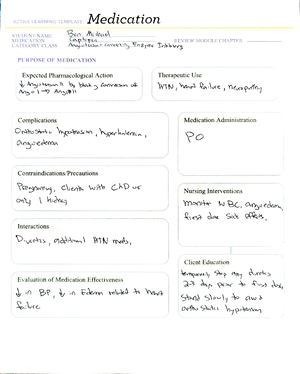 ACTIVE LEARNING TEMPLATE: Medication
STUDENT NAME Ben
MEDICATION Captopril
REVIEW MODULE CHAPTER
CATEGORY CLASS Angiotensin-converting Enzyme Inhibitors
PURPOSE OF MEDICATION
Expected Pharmacological Action
↓ Angiotensin II by blocking conversion of
Ang I → Ang II
Therapeutic Use
HTN, heart failure, nephropathy
Complications
Orthostatic hypotension, hyperkalemia,
angioedema
Medication Administration
PO
Contraindications/Precautions
Pregnancy, Clients with CKD or
only 1 kidney
Nursing Interventions
monitor WBC, angioedema,
first dose side effects,
Interactions
Diuretics, additional HTN meds,
Client Education
temporarily stop any diuretics
2-3 days prior to first dose,
stand slowly to avoid
orthostatic hypotension
Evaluation of Medication Effectiveness
↓ in BP, ↓ in Edema related to heart
failure